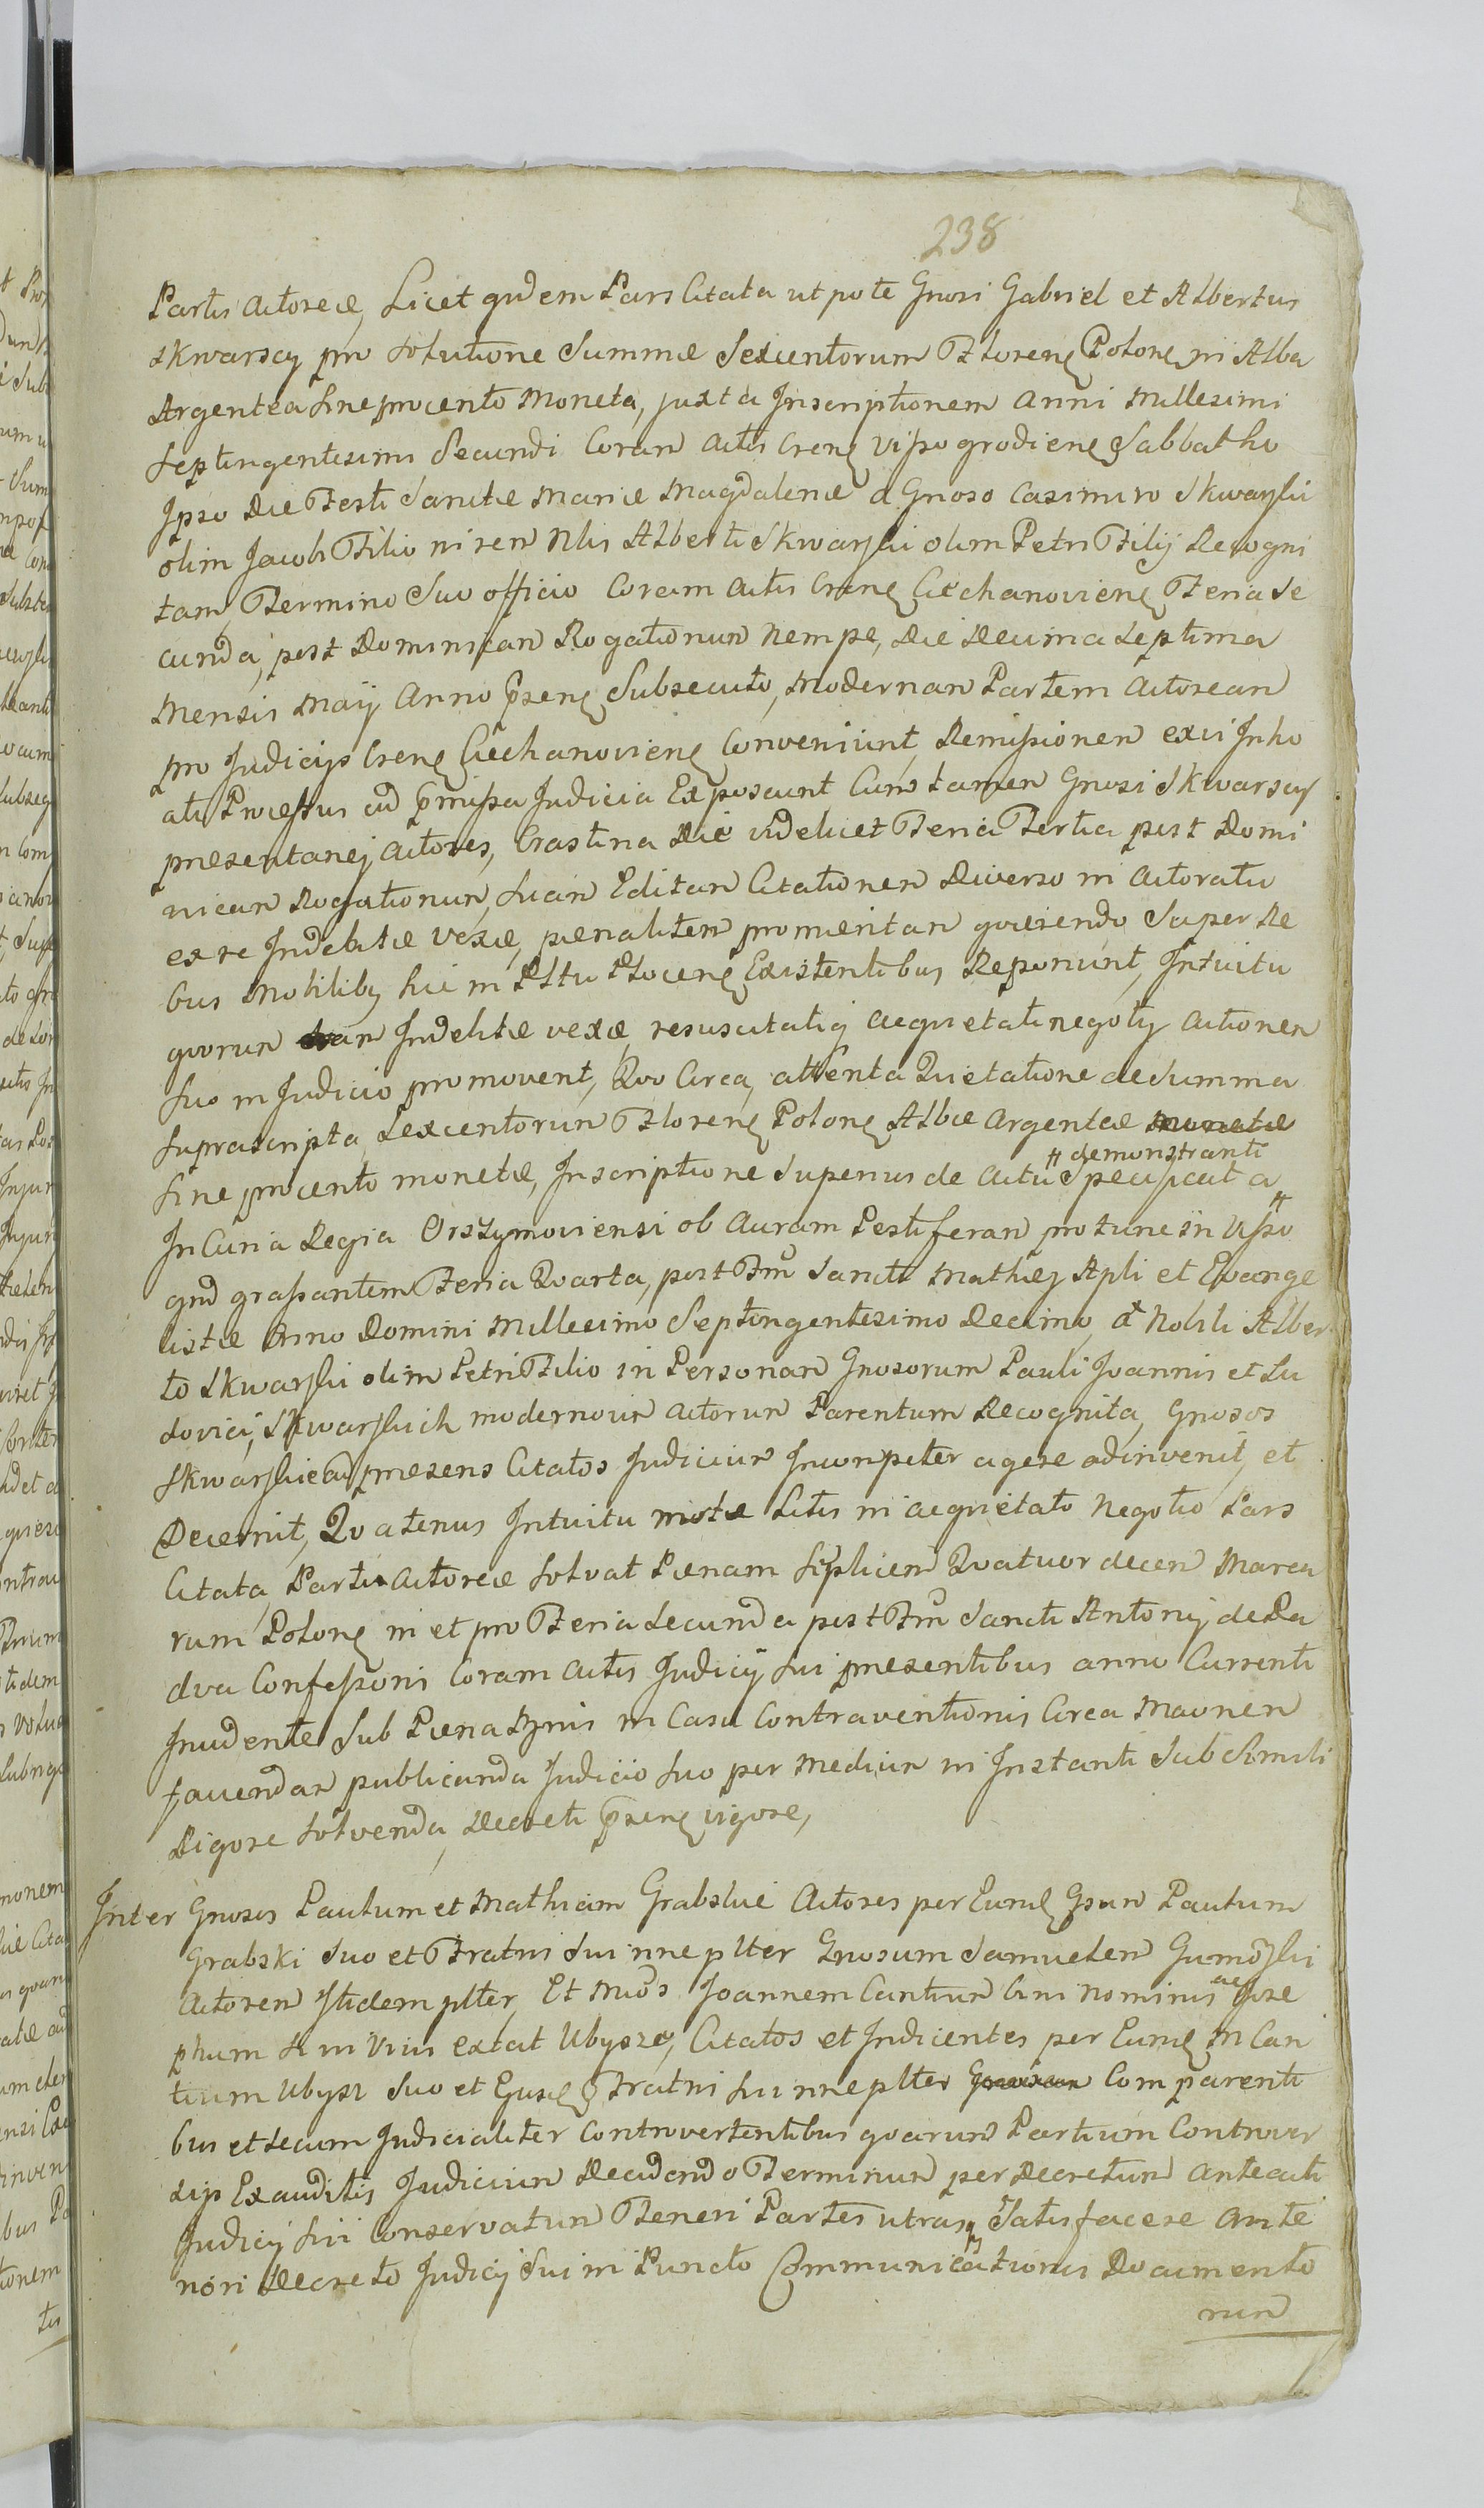 238
Partis Actoreae, Licet quidem Pars Citata ut pote Gnosi Gabriel et Albertus
Skwarscy pro Solutione Summae Sexcentorum Floren Polon in Alba
Argentea sine procento Moneta, juxta Inscriptionem Anni Millesimi
Septingentesimi Secundi Coram Actis Cren Visso grodien Sabbatho
Ipso Die Festi Sanctae Mariae Magdalenae a Gnoso Casimiro Skwarski
olim Jacobi Filio in rem Nlis Alberti Skwarski olim Petri Filij Recogni
tam, Termino Suo officio Coram Actis Cren Ciechanovien Feria Se
cunda, post Dominicam Rogationum Nempe, Die Decima Septima
Mensis Maij Anno psen Subsecuto, Modernam Partem Actoream
pro Judicijs Cren Ciechanovien Conveniunt, Remissionem exvi Inho
ati Processus ad pmissa Judicia Exposcunt Cum tamen Gnosi Skwarscy
praesentanej Actores, Crastina Die videlicet Feria Tertia post Domi
nicam Rogationum, Suam Editam Citationem Diverso in Actoratu
ex re Indebitae Vexae, paenalitem promeritam quaerendo Super Re
bus Mobiliby hic in Pltu Plocen Existentibus Reponunt, Intuitu
quorum an Indebitae vexae, resuscitatiq aequietati negotij Actionem
Suo in Judicio promovent, Quo Circa, attenta Quietatione de Summa
Suprascripta, Sexcentorum Floren Polon Albae Argenteae monetae
Sine procento monetae, Inscriptione Superius de Actu Specificata
demonstranti
In Curia Regia Orszymoviensi ob Auram Pestiferam pro tunc in Visso
gnd grassantem Feria Quarta, post Fm Sancti Mathaej Apli et Evange
listae Anno Domini Millesimo Septingentesimo Decimo, a Nobili Alber
to Skwarski olim Petri Filio in Personam Gnosorum Pauli Joannis et Lu
dovici, Skwarskich modernorum Actorum Parentum Recognita, Gnosos
Skwarskie ad praesens Citatos Judicium Incompeter agere adinvenit, et
Decernit, Quatenus Intuitu motae Litis in aequietato Negotio Pars
Citata, Parti Actoreae Solvat Paenam Siplicem Quatuor decem Marca
rum Polon in et pro Feria Secunda post Fm Sancti Antonij de Pa
dva Confessoris Coram Actis Judicij Sui praesentibus anno Currenti
Incidente Sub Paena Bznis in Casu Contraventionis Circa Maonem
faciendam publicanda Judicio Suo per Medium in Instanti Sub Simili
Rigore Solvenda, Decreti psen vigore,
Inter Gnosos Paulum et Mathiam Grabskie Actores per Eund Gsum Paulum
Grabski Suo et Fratris Sui nne plter Gnosum Samuelem Gumowski
Actorem Itidem plter, Et Mwos Joannem Cantium bini nominis ac Jose
phum Si in Vivis extat Ubysze, Citatos et Indicentes per Eund M Can
tium Ubysz Suo et Ejusd Fratris Sui nne plter Comparenti
bus et Secum Judicialiter Controvertentibus quarum Partium Controver
sijs Exauditis Judicium Decidendo Terminum per Decretum Anteacti
Judicij Sui Conservatum Teneri Partes utrasq Satisfacere Ante
riori Decreto Judicij Sui in Puncto Communicationis Documento
rum